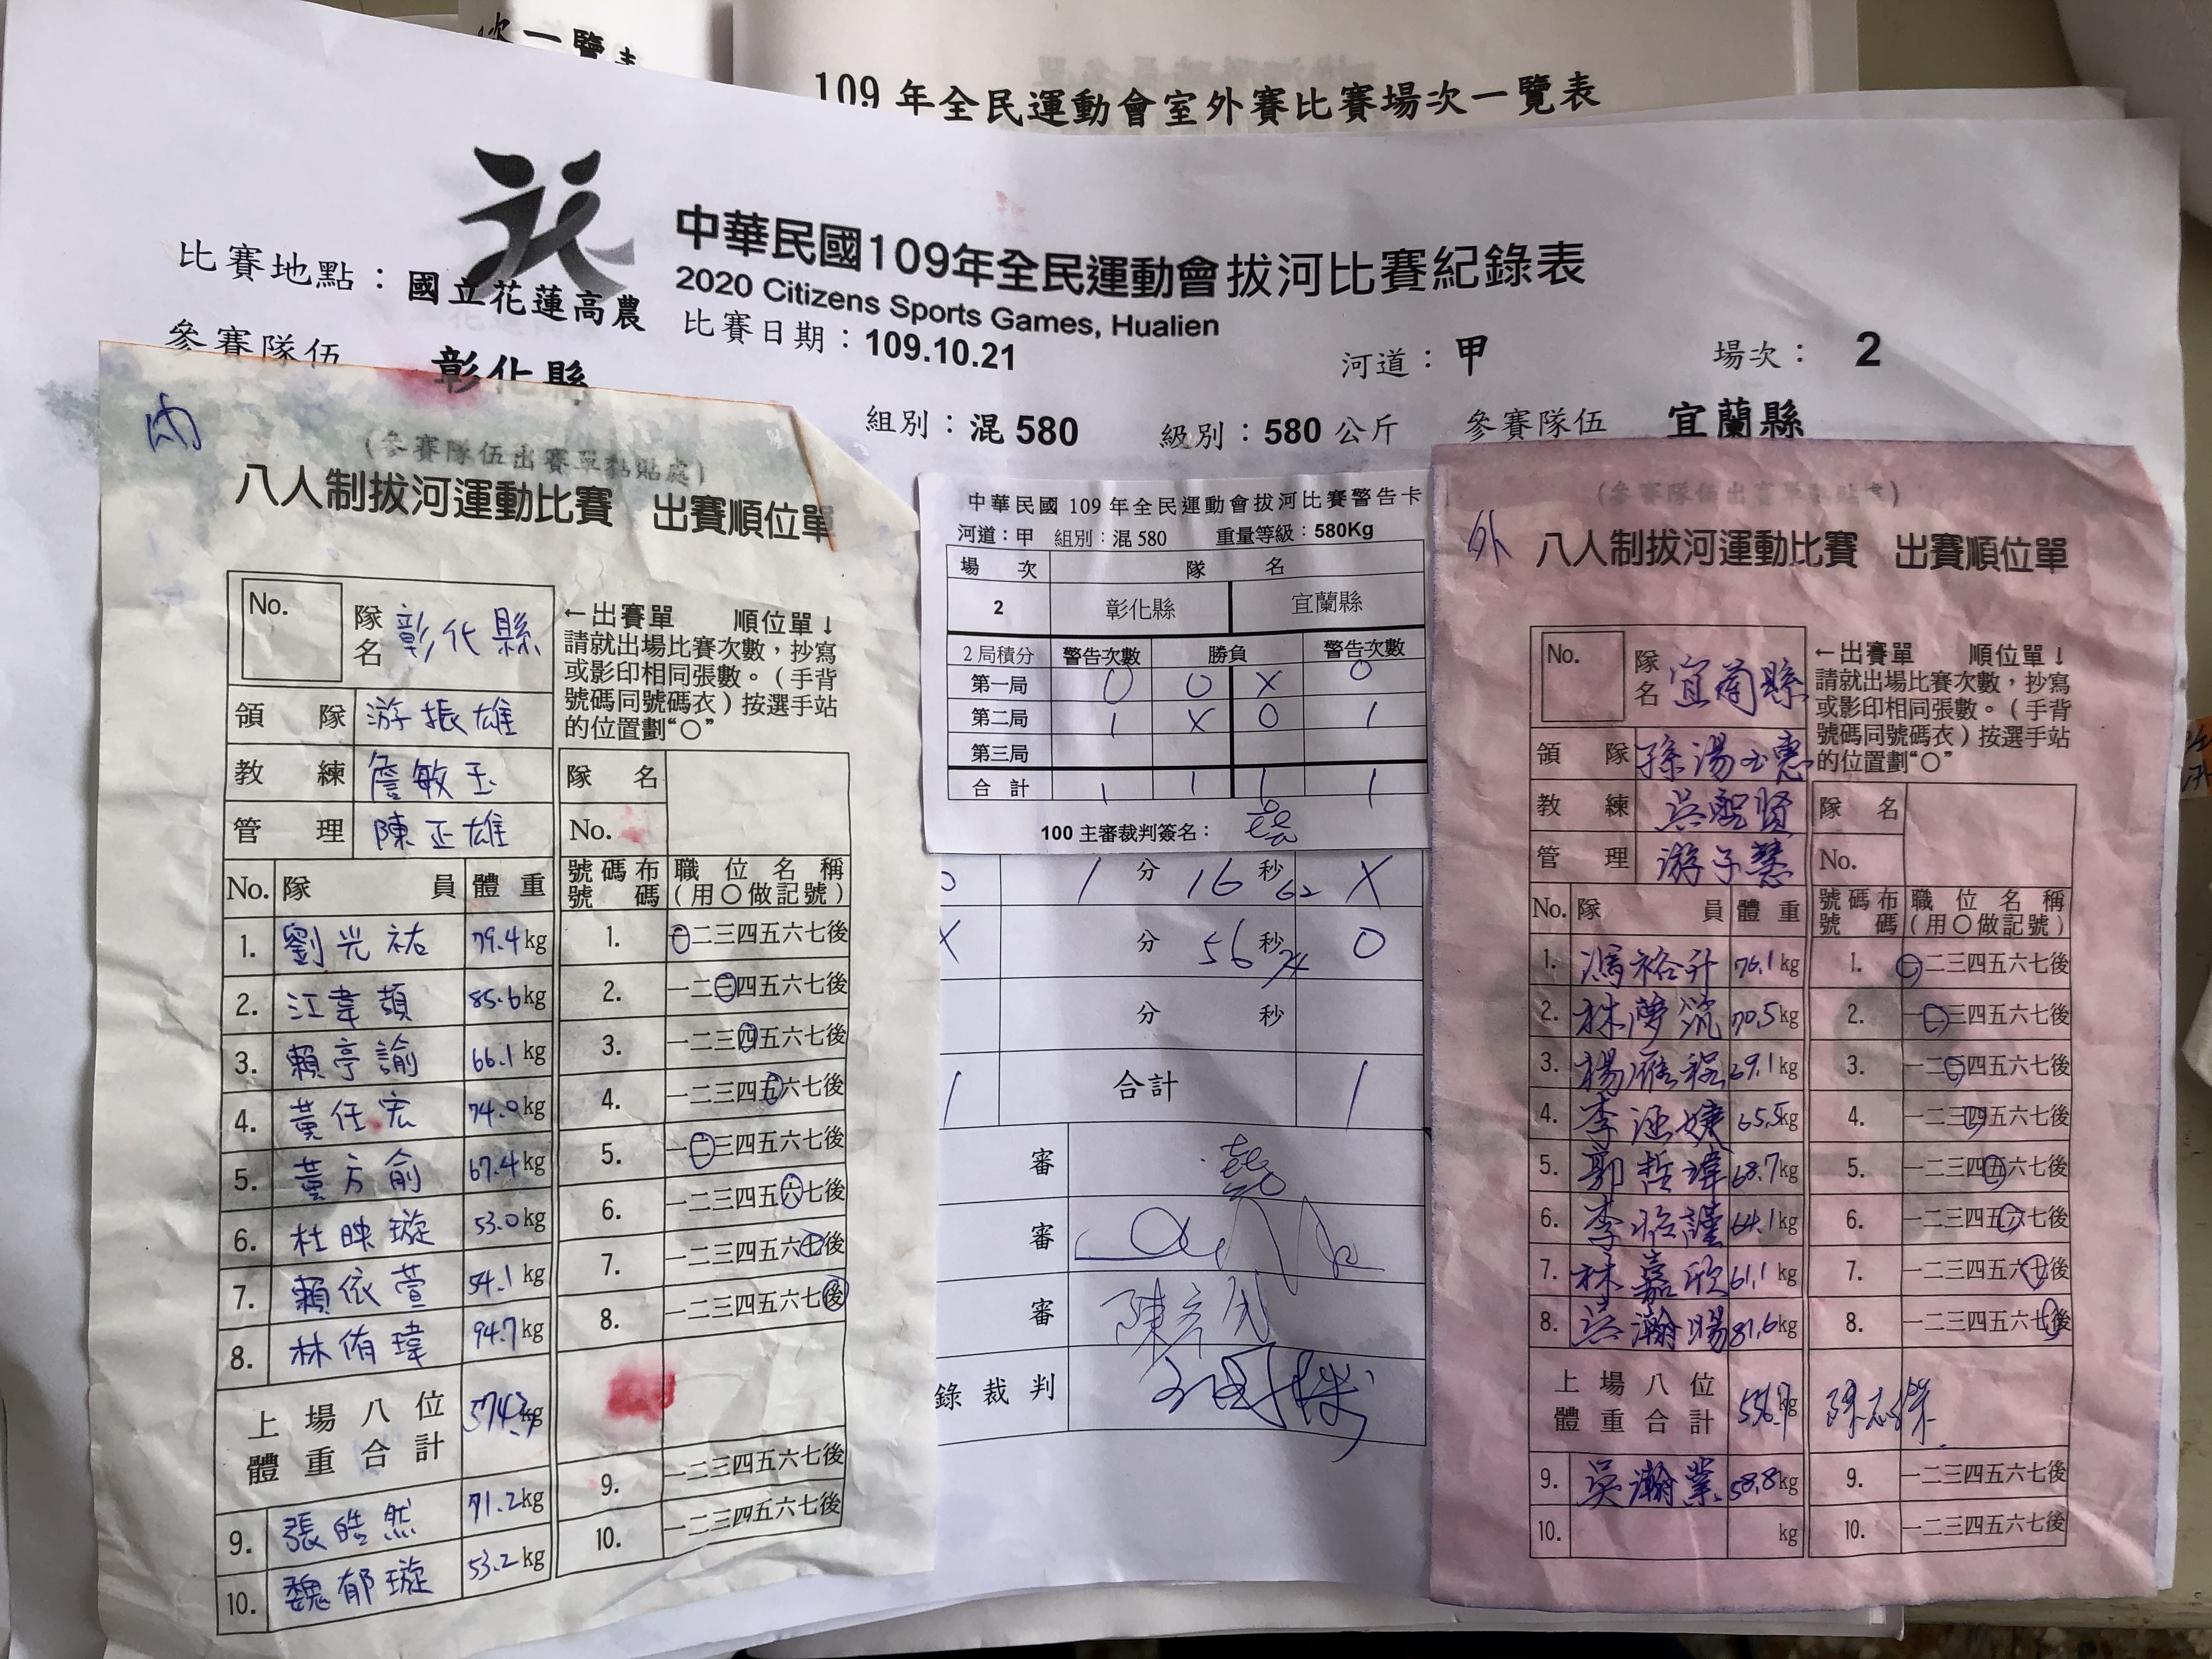 次一覽表
109 年全民運動會室外賽比賽場次一覽表
中華民國109年全民運動會拔河比賽紀錄表
2020 Citizens Sports Games, Hualien
比賽地點：國立花蓮高農
比賽日期：109.10.21
河道：甲
場次：2
參賽隊伍 彰化縣
組別：混 580
級別：580 公斤
參賽隊伍 宜蘭縣
內
(參賽隊伍出賽單黏貼處)
八人制拔河運動比賽 出賽順位單
No.
隊名 彰化縣
←出賽單 順位單↓
請就出場比賽次數，抄寫
或影印相同張數。(手背
號碼同號碼衣)按選手站
的位置劃“○”
領隊 游振雄
教練 詹敏玉
管理 陳正雄
隊名
No.
No. 隊員 體重
號碼布號碼 職位名稱(用○做記號)
1. 劉光祐 79.4kg 1. 一二三四五六七後
2. 江韋頡 85.6kg 2. 一二三四五六七後
3. 賴亭諭 66.1kg 3. 一二三四五六七後
4. 黃任宏 74.0kg 4. 一二三四五六七後
5. 黃方俞 67.4kg 5. 一二三四五六七後
6. 杜映璇 53.0kg 6. 一二三四五六七後
7. 賴依萱 54.1kg 7. 一二三四五六七後
8. 林侑瑋 94.7kg 8. 一二三四五六七後
上場八位體重合計 574.3kg
9. 張皓然 71.2kg 9. 一二三四五六七後
10. 魏郁璇 53.2kg 10. 一二三四五六七後
中華民國 109 年全民運動會拔河比賽警告卡
河道：甲 組別：混 580 重量等級：580Kg
場次 隊名
2 彰化縣 宜蘭縣
2局積分 警告次數 勝負 警告次數
第一局 0 O X 0
第二局 1 X O 1
第三局
合計 1 1 1 1
100 主審裁判簽名：
O 1 分 16 秒 62 X
X 分 56 秒 74 O
分 秒
1 合計 1
審
審
審
錄裁判
外
(參賽隊伍出賽單黏貼處)
八人制拔河運動比賽 出賽順位單
No.
隊名 宜蘭縣
←出賽單 順位單↓
請就出場比賽次數，抄寫
或影印相同張數。(手背
號碼同號碼衣)按選手站
的位置劃“○”
領隊 孫湯玉惠
教練 吳聖賢
管理 游子慧
隊名
No.
No. 隊員 體重
號碼布號碼 職位名稱(用○做記號)
1. 馮裕升 76.1kg 1. 一二三四五六七後
2. 林夢 70.5kg 2. 一二三四五六七後
3. 楊雁程 69.1kg 3. 一二三四五六七後
4. 李涵婕 65.5kg 4. 一二三四五六七後
5. 郭哲瑋 68.7kg 5. 一二三四五六七後
6. 李謹 64.1kg 6. 一二三四五六七後
7. 林嘉欣 61.1kg 7. 一二三四五六七後
8. 吳瀚暘 81.6kg 8. 一二三四五六七後
上場八位體重合計 kg
9. 吳瀚業 58.8kg 9. 一二三四五六七後
10. kg 10. 一二三四五六七後